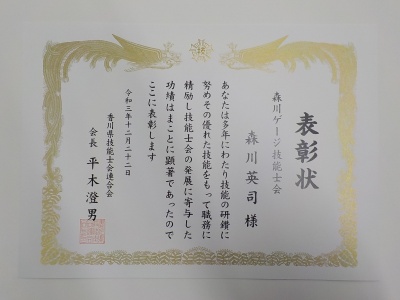 表彰状
森川ゲージ技能士会
森川英司様
あなたは多年にわたり技能の研鑽に
努めその優れた技能をもって職務に
精励し技能士会の発展に寄与した
功績はまことに顕著であったので
ここに表彰します
令和三年十二月二十二日
香川県技能士会連合会
会長 平木澄男